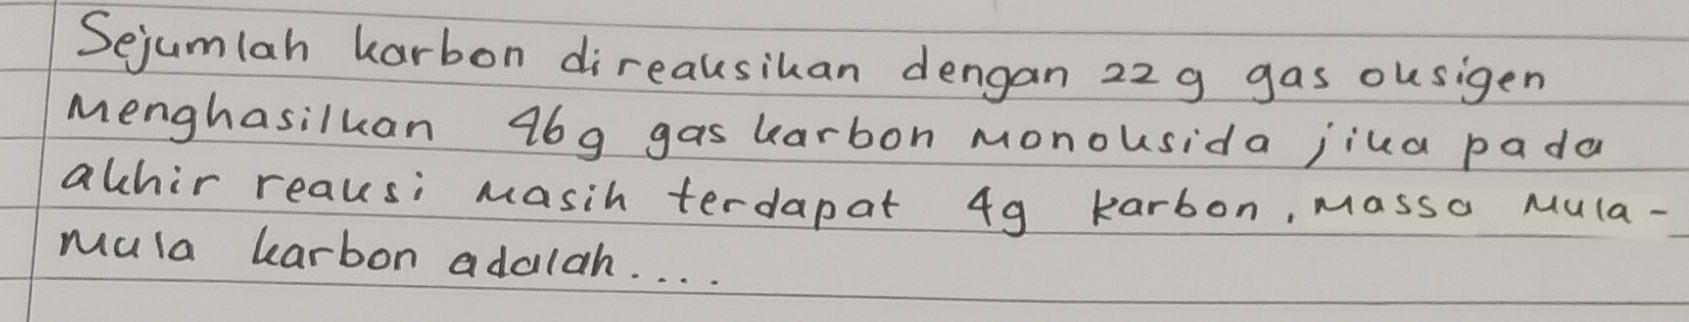 Sejumlah karbon direaksikan dengan 22 g gas oksigen
menghasilkan 46 g gas karbon monoksida jika pada
akhir reaksi masih terdapat 4g karbon, massa mula-
mula karbon adalah....